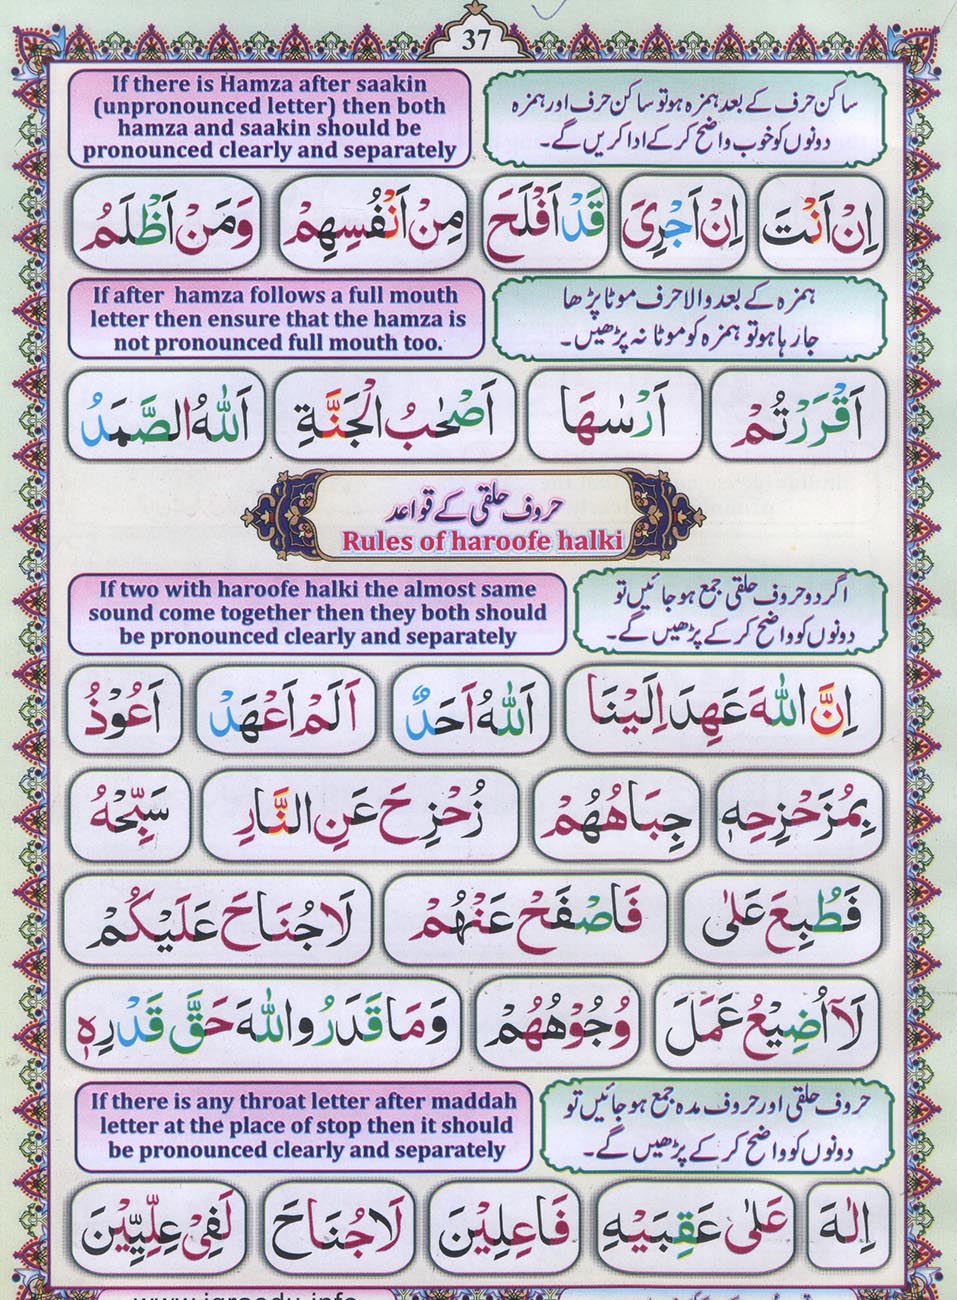 37
If there is Hamza after saakin
(unpronounced letter) then both
hamza and saakin should be
pronounced clearly and separately
ساکن حرف کے بعد ہمزہ ہو تو ساکن حرف اور ہمزہ
دونوں کو خوب واضح کر کے ادا کریں گے۔
اِنْ اَنْتَ اِنْ اَجْرِیَ قَدْ اَفْلَحَ مِنْ اَنْفُسِهِمْ وَمَنْ اَظْلَمُ
If after hamza follows a full mouth
letter then ensure that the hamza is
not pronounced full mouth too.
ہمزہ کے بعد والا حرف موٹا پڑھا
جا رہا ہو تو ہمزہ کو موٹا نہ پڑھیں۔
اَقْرَرْتُمْ اَرْسٰهَا اَصْحٰبُ الْجَنَّةِ اَللّٰهُ الصَّمَدُ
حروف حلقی کے قواعد
Rules of haroofe halki
If two with haroofe halki the almost same
sound come together then they both should
be pronounced clearly and separately
اگر دو حروف حلقی جمع ہو جائیں تو
دونوں کو واضح کر کے پڑھیں گے۔
اِنَّ اللّٰهَ عَهِدَ اِلَیْنَا اَللّٰهُ اَحَدٌ اَلَمْ اَعْهَدْ اَعُوْذُ
بِمُزَحْزِحِهٖ جِبَاهُهُمْ زُحْزِحَ عَنِ النَّارِ سَبِّحْهُ
فَطُبِعَ عَلٰی فَاصْفَحْ عَنْهُمْ لَاجُنَاحَ عَلَیْكُمْ
لَاۤ اُضِیْعُ عَمَلَ وُجُوْهُهُمْ وَمَا قَدَرُوا اللّٰهَ حَقَّ قَدْرِهٖ
If there is any throat letter after maddah
letter at the place of stop then it should
be pronounced clearly and separately
حروف حلقی اور حروف مدہ جمع ہو جائیں تو
دونوں کو واضح کر کے پڑھیں گے۔
اِلٰهَ عَلٰی عَقِبَیْهِ فَاعِلِیْنَ لَاجُنَاحَ لَفِیْ عِلِّیِّیْنَ
www.iqraedu.info